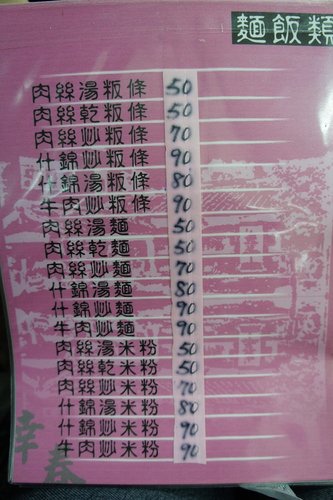 麵飯類
肉絲湯粄條 50
肉絲乾粄條 50
肉絲炒粄條 70
什錦炒粄條 90
什錦湯粄條 80
牛肉炒粄條 90
肉絲湯麵 50
肉絲乾麵 50
肉絲炒麵 70
什錦湯麵 80
什錦炒麵 90
牛肉炒麵 90
肉絲湯米粉 50
肉絲乾米粉 50
肉絲炒米粉 70
什錦湯米粉 80
什錦炒米粉 90
牛肉炒米粉 90